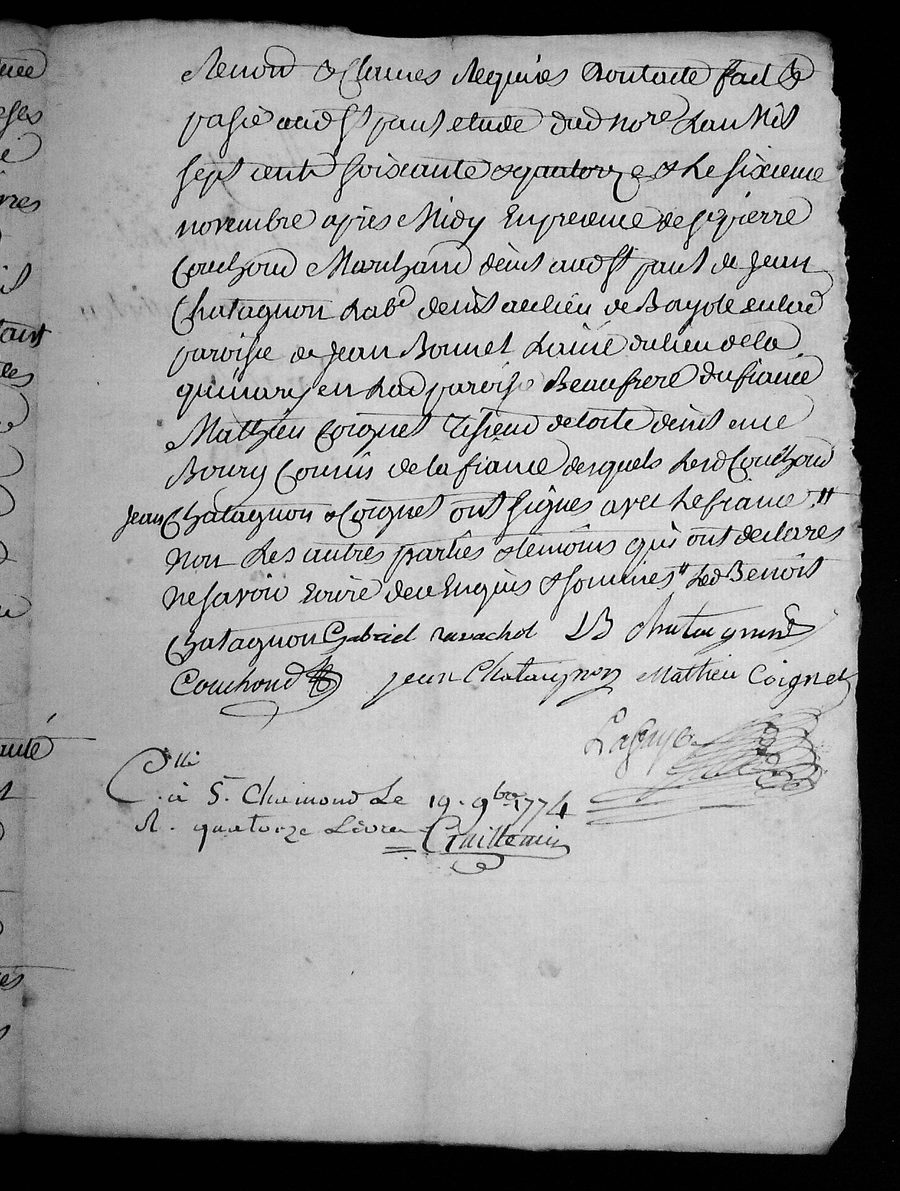 Renon & Clauses Requises Dont acte fait &
passé aud St paul etude dud nore Lan Mil
sept cents soixante & quatorze & Le sixieme
novembre apres Midy En presence de Sr pierre
Couchoud Marchand de aud St paul de Jean
Chatagnon Labr au lieu de Bayole sulad
paroisse de Jean Bonnet Lainé du lieu de la
en Lad paroisse Beaufrere du fiancé
Mathieu Coignet Tisseur de toile
Bourg Cousin de la fiancée desquels Led Couchoud
Jean Chatagnon & Coignet ont signés avec Le fiancé "
non Les autres parties & temoins qui ont declares
ne savoir Ecrire de ce Enquis & sommés " Led Benoit
Chatagnon Gabriel ravachol B chatagnond
Couchoud Jean Chatagnon Mathieu Coignet
Cllé
à St. Chamond Le 19. 9bre 1774
R. quatorze Livres